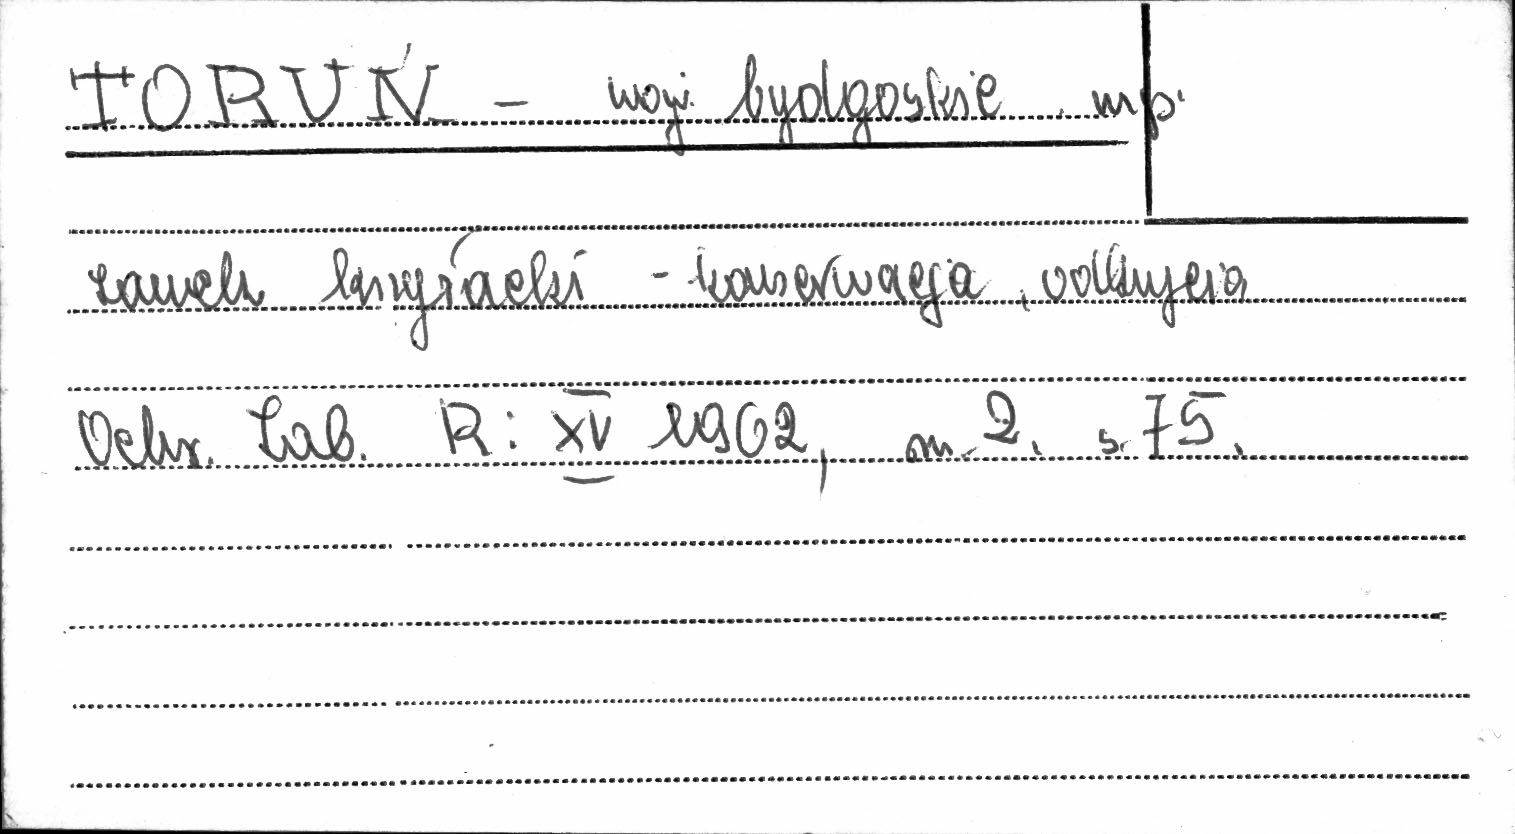 TORUŃ - woj. bydgoskie mp.
zamek krzyżacki - konserwacja, odkrycia
Ochr. Zab. R: XV 1962, nr 2. s. 75.